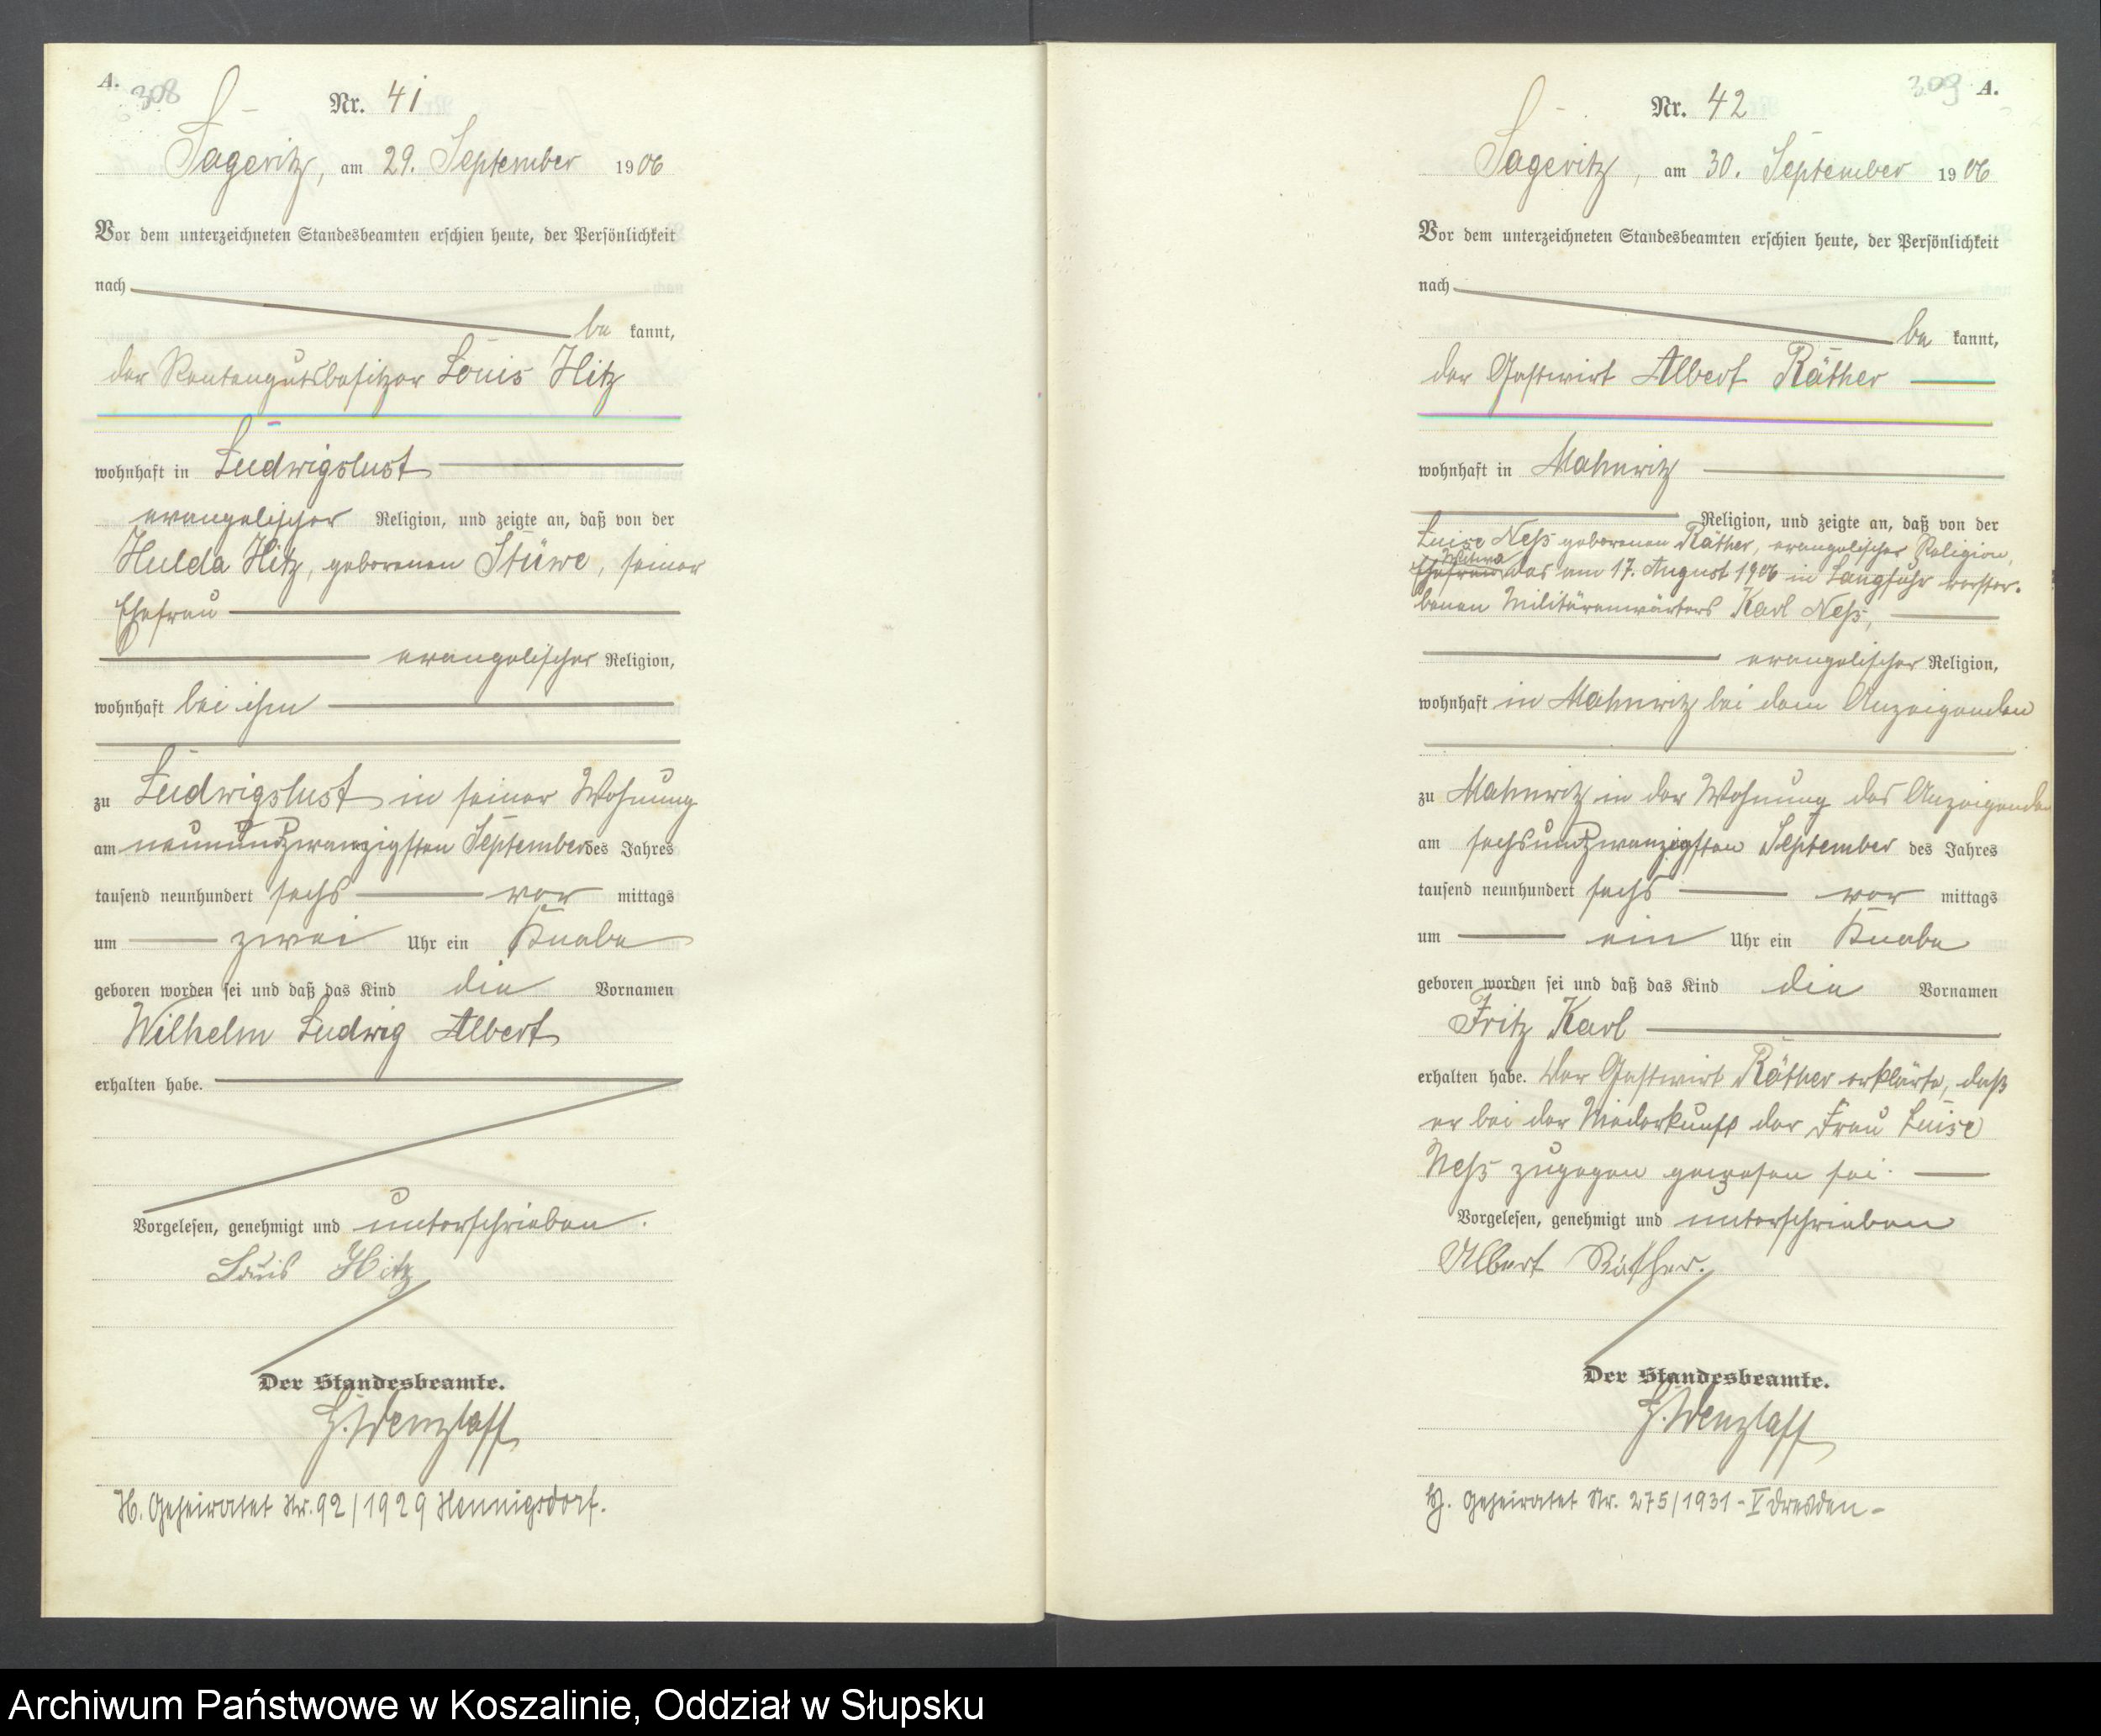 A.
308
Nr. 41
Sageritz, am 29. September 1906
Vor dem unterzeichneten Standesbeamten erschien heute, der Persönlichkeit
nach
be kannt,
der Rentengutsbesitzer Louis Hitz
wohnhaft in Ludwigslust
evangelischer Religion, und zeigte an, daß von der
Hulda Hitz, geborenen Stüwe, seiner
Ehefrau
evangelischer Religion,
wohnhaft bei ihm
zu Ludwigslust in seiner Wohnung
am neunundzwanzigsten September des Jahres
tausend neunhundert sechs vor mittags
um zwei Uhr ein Knabe
geboren worden sei und daß das Kind die Vornamen
Wilhelm Ludwig Albert
erhalten habe.
Vorgelesen, genehmigt und unterschrieben.
Louis Hitz
Der Standesbeamte.
H. Wenzlaff
H. Geheiratet Nr. 92/1929 Hennigsdorf.
309 A.
Nr. 42
Sageritz, am 30. September 1906
Vor dem unterzeichneten Standesbeamten erschien heute, der Persönlichkeit
nach
be kannt,
der Gastwirt Albert Räther
wohnhaft in Mahnwitz
Religion, und zeigte an, daß von der
Luise Neß geborenen Räther, evangelischer Religion,
Witwe
Ehefrau des am 17. August 1906 in Langfuhr verstor-
benen Militäranwärters Karl Neß,
evangelischer Religion,
wohnhaft in Mahnwitz bei dem Anzeigenden
zu Mahnwitz in der Wohnung des Anzeigenden
am sechsundzwanzigsten September des Jahres
tausend neunhundert sechs vor mittags
um ein Uhr ein Knabe
geboren worden sei und daß das Kind die Vornamen
Fritz Karl
erhalten habe. Der Gastwirt Räther erklärte, daß
er bei der Niederkunft der Frau Luise
Neß zugegen gewesen sei.
Vorgelesen, genehmigt und unterschrieben
Albert Räther.
Der Standesbeamte.
H. Wenzlaff
H. Geheiratet Nr. 275/1931 - V Dresden -
Archiwum Państwowe w Koszalinie, Oddział w Słupsku